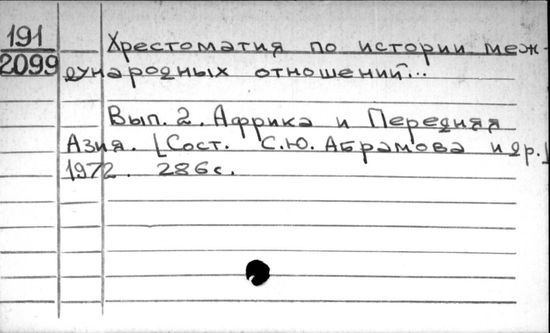 191
2099
Хрестоматия по истории меж-
дународных отношений...
Вып. 2. Африка и Передняя
Азия. [Сост. С.Ю. Абрамова и др.]
1972. 286 с.